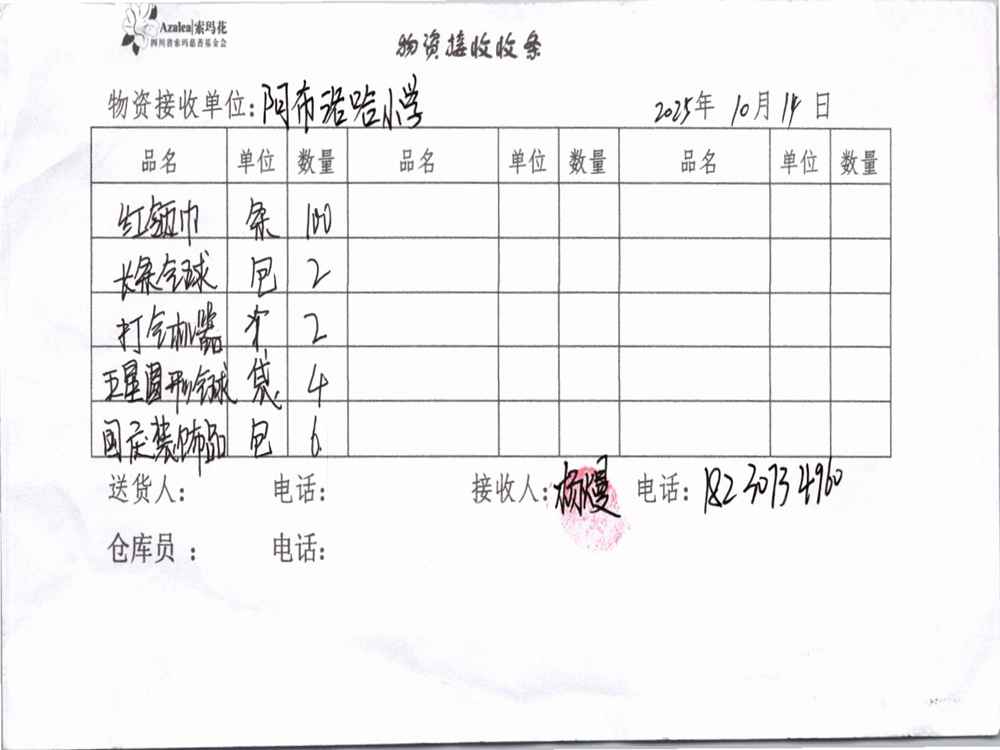 Azalea|索玛花
四川省索玛慈善基金会
物资接收收条
物资接收单位:阿布洛哈小学 2025年 10月 14日
品名 单位 数量 品名 单位 数量 品名 单位 数量
红领巾 条 100
长条气球 包 2
打气机器 个 2
五星圆形气球 袋 4
国庆装饰品 包 6
送货人: 电话: 接收人:杨嫚 电话: 18230734960
仓库员 : 电话: